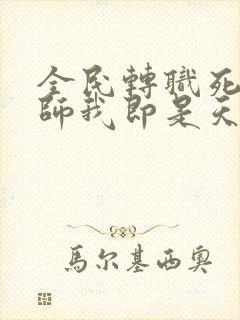 全民轉職死
師我即是天
馬尔基西奧